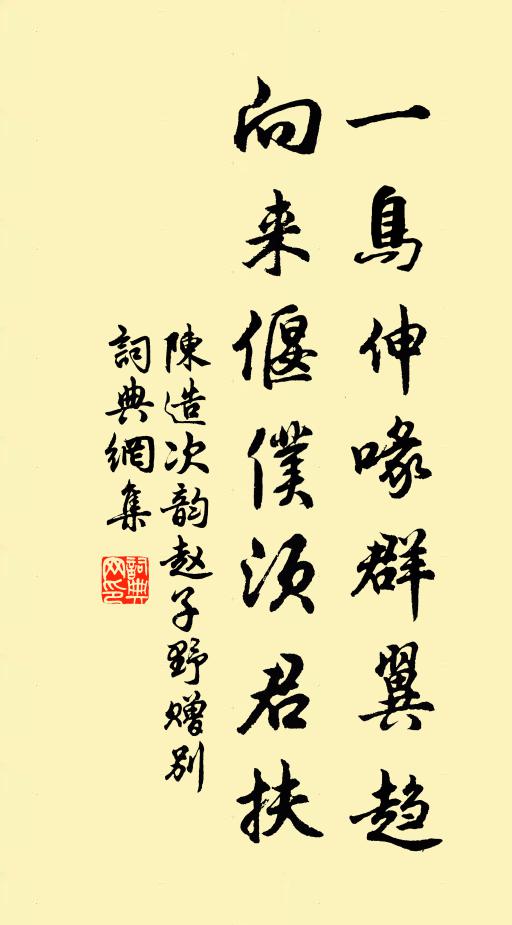 一鳥伸喙群翼趋
向来偃僕须君扶
陳造次韵赵子野赠别
詞典網集
詞典网印